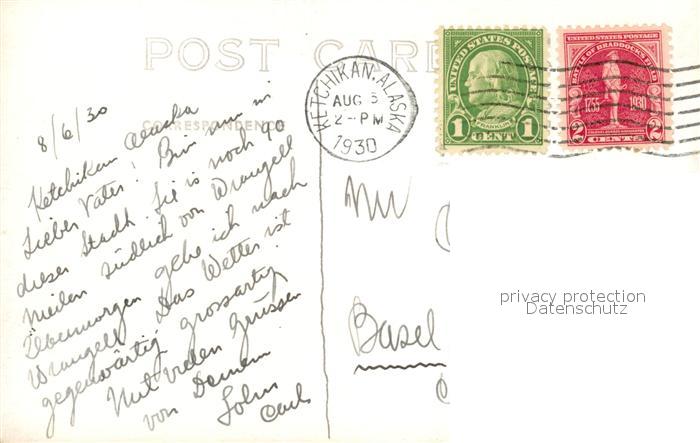 POST CARD
CORRESPONDENCE
8/6/30
Ketchikan Alaska
Lieber Vater! Bin nun in
dieser Stadt. Sie is noch 90
Meilen südlich von Wrangell
Übermorgen gehe ich nach
Wrangell. Das Wetter ist
gegenwärtig grossartig
Mit vielen Grüssen
von Deinem
Sohn
Carl
KETCHIKAN, ALASKA
AUG 6
2-PM
1930
UNITED STATES POSTAGE
FRANKLIN
1 CENT 1
UNITED STATES POSTAGE
BATTLE OF BRADDOCK'S FIELD
1755 1930
2 CENTS 2
Basel
privacy protection
Datenschutz